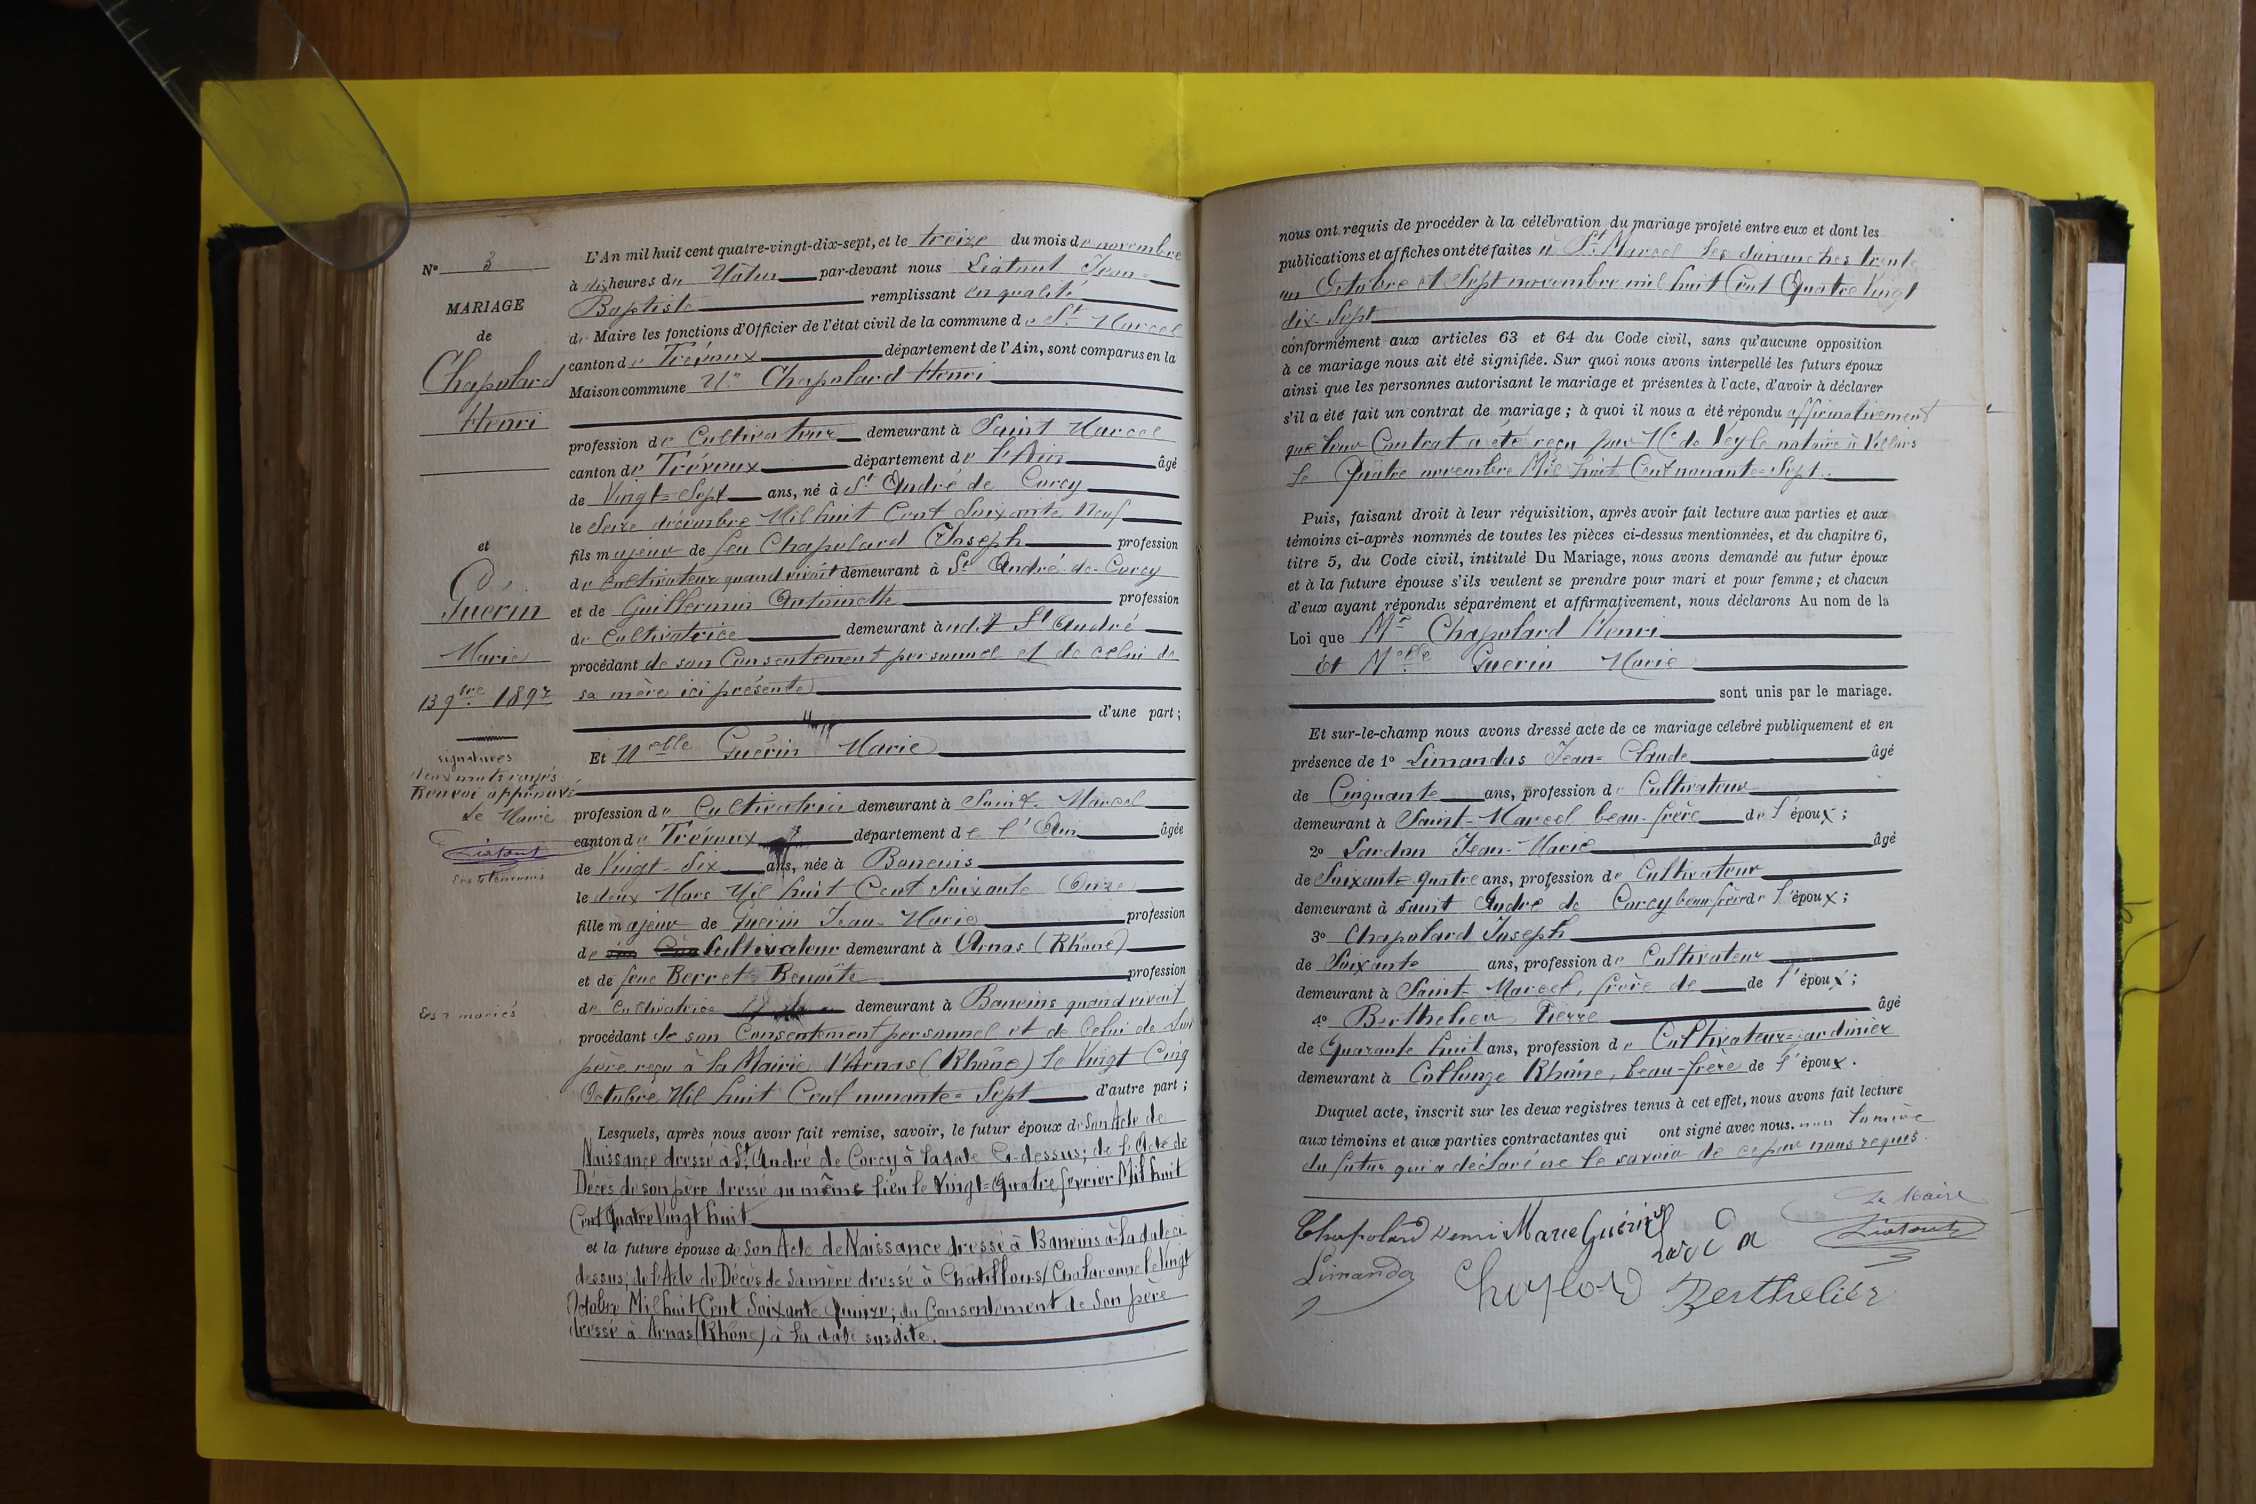 N° 3
MARIAGE
de
Chapolard
Henri
et
Guérin
Marie
13 9bre 1897
signatures
deux mots rayés
Renvoi approuvé
Le Maire
Liatout
Les 2 mariés
L'An mil huit cent quatre-vingt-dix-sept, et le treize du mois de novembre
à dix heures du Matin par-devant nous Liatout Jean-
Baptiste remplissant en qualité
de Maire les fonctions d'Officier de l'état civil de la commune de St Marcel
canton de Trévoux département de l'Ain, sont comparus en la
Maison commune Mr Chapolard Henri
profession de Cultivateur demeurant à Saint Marcel
canton de Trévoux département de l'Ain âgé
de Vingt=Sept ans, né à St André de Corcy
le Seize décembre Mil huit Cent Soixante Neuf
fils majeur de feu Chapolard Joseph profession
de Cultivateur quand vivait demeurant à St André-de-Corcy
et de Guillermin Antoinette profession
de Cultivatrice demeurant à udit St André
procédant de son Consentement personnel et de celui de
sa mère ici présente
d'une part ;
Et Melle Guérin Marie
profession de Cultivatrice demeurant à Saint-Marcel
canton de Trévoux département de l'Ain âgée
de Vingt-Six ans, née à Baneins
le deux Mars Mil huit Cent Soixante Onze
fille majeur de Guérin Jean-Marie profession
de Cultivateur demeurant à Arnas (Rhône)
et de feue Berret Benoîte profession
de Cultivatrice demeurant à Baneins quand vivait
procédant de son Consentement personnel et de Celui de son
père reçu à la Mairie d'Arnas (Rhône) le Vingt Cinq
Octobre Mil huit Cent nonante=Sept d'autre part ;
Lesquels, après nous avoir fait remise, savoir, le futur époux de son Acte de
Naissance dressé à St André de Corcy à la date Ci-dessus ; de l'Acte de
Décès de son père dressé au même lieu le Vingt=Quatre février Mil huit
Cent Quatre Vingt huit
et la future épouse de son Acte de Naissance dressé à Baneins à la date ci
dessus ; de l'Acte de Décès de sa mère dressé à Châtillon s/ Chalaronne le Vingt
Octobre Mil huit Cent Soixante Quinze ; du Consentement de Son père
dressé à Arnas (Rhône) à la date susdite.
nous ont requis de procéder à la célébration du mariage projeté entre eux et dont les
publications et affiches ont été faites à St Marcel les dimanches trente
un Octobre et Sept novembre mil huit Cent Quatre Vingt
dix-Sept
conformément aux articles 63 et 64 du Code civil, sans qu'aucune opposition
à ce mariage nous ait été signifiée. Sur quoi nous avons interpellé les futurs époux
ainsi que les personnes autorisant le mariage et présentes à l'acte, d'avoir à déclarer
s'il a été fait un contrat de mariage ; à quoi il nous a été répondu affirmativement
que leur Contrat a été reçu par Me de Veyle notaire à Villars
le Quatre novembre Mil huit Cent nonante=Sept.
Puis, faisant droit à leur réquisition, après avoir fait lecture aux parties et aux
témoins ci-après nommés de toutes les pièces ci-dessus mentionnées, et du chapitre 6,
titre 5, du Code civil, intitulé Du Mariage, nous avons demandé au futur époux
et à la future épouse s'ils veulent se prendre pour mari et pour femme ; et chacun
d'eux ayant répondu séparément et affirmativement, nous déclarons Au nom de la
Loi que Mr Chapolard Henri
Et Melle Guérin Marie
sont unis par le mariage.
Et sur-le-champ nous avons dressé acte de ce mariage célébré publiquement et en
présence de 1° Limandas Jean=Claude âgé
de Cinquante ans, profession de Cultivateur
demeurant à Saint=Marcel beau-frère de l'époux ;
2° Sardon Jean-Marie âgé
de Soixante-quatre ans, profession de Cultivateur
demeurant à Saint André de Corcy beau frère de l'époux ;
3° Chapolard Joseph
de Soixante ans, profession de Cultivateur
demeurant à Saint Marcel, frère de de l'époux ;
4° Berthelier Pierre âgé
de Quarante huit ans, profession de Cultivateur=jardinier
demeurant à Collonge Rhône, beau-frère de l'époux.
Duquel acte, inscrit sur les deux registres tenus à cet effet, nous avons fait lecture
aux témoins et aux parties contractantes qui ont signé avec nous. non la mère
du futur qui a déclaré ne le savoir de ce par nous requis.
Chapolard Henri Marie Guérin
Le Maire
Liatout
Limandas
Berthelier